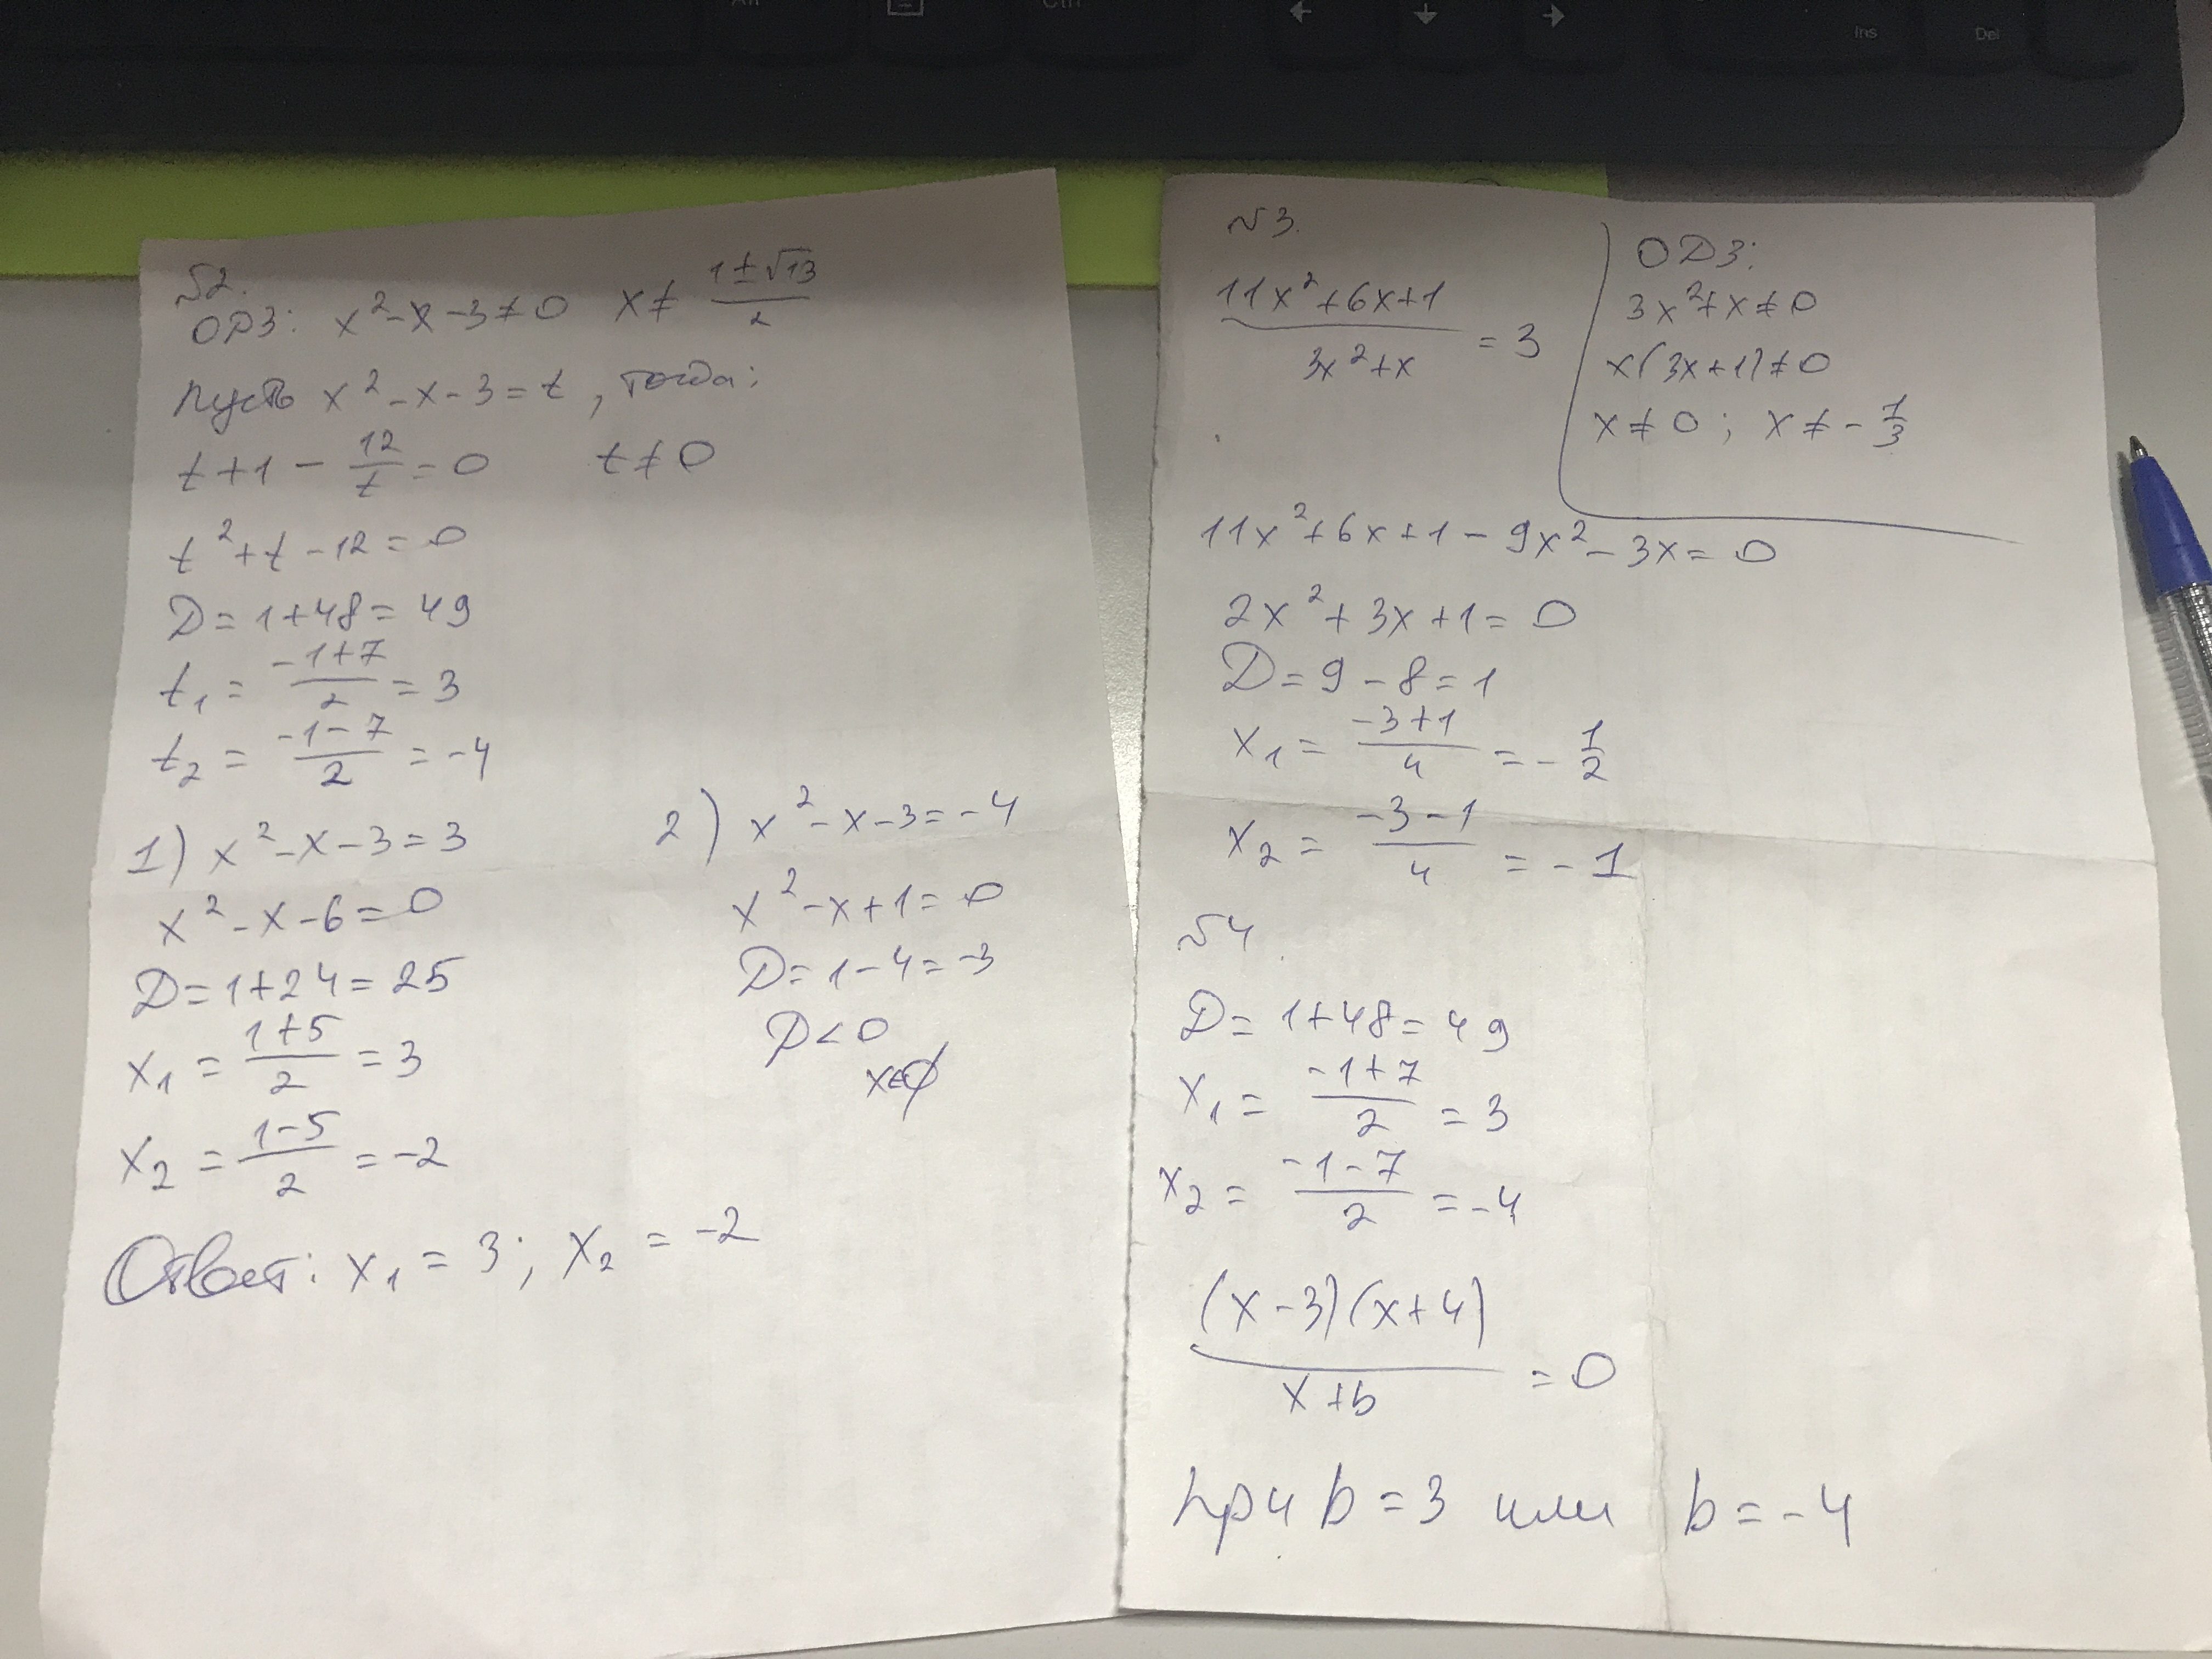 Alt Ctrl
Ins Del
№2.
ОДЗ: x²-x-3≠0 x≠ (1±√13)/2
Пусть x²-x-3=t, тогда:
t+1 - 12/t = 0 t≠0
t²+t-12=0
D=1+48=49
t₁ = (-1+7)/2 = 3
t₂ = (-1-7)/2 = -4
1) x²-x-3=3
x²-x-6=0
D=1+24=25
x₁ = (1+5)/2 = 3
x₂ = (1-5)/2 = -2
2) x²-x-3=-4
x²-x+1=0
D=1-4=-3
D<0
x∈∅
Ответ: x₁ = 3; x₂ = -2
№3.
(11x²+6x+1)/(3x²+x) = 3
ОДЗ:
3x²+x≠0
x(3x+1)≠0
x≠0; x≠-1/3
11x²+6x+1-9x²-3x=0
2x²+3x+1=0
D=9-8=1
x₁ = (-3+1)/4 = -1/2
x₂ = (-3-1)/4 = -1
№4.
D=1+48=49
x₁ = (-1+7)/2 = 3
x₂ = (-1-7)/2 = -4
((x-3)(x+4))/(x+b) = 0
при b=3 или b=-4